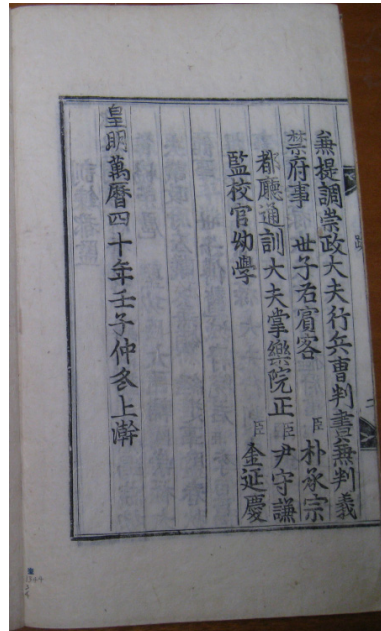 兼提調崇政大夫行兵曹判書兼判義
禁府事 世子右賓客 臣 朴承宗
都廳通訓大夫掌樂院正 臣 尹守謙
監校官幼學 臣 金延慶
皇明萬曆四十年壬子仲冬上澣